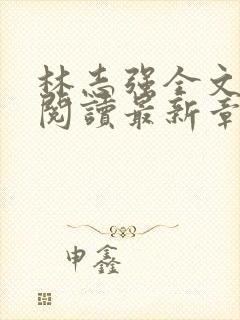 林志强全文
閱讀最新章
申鑫